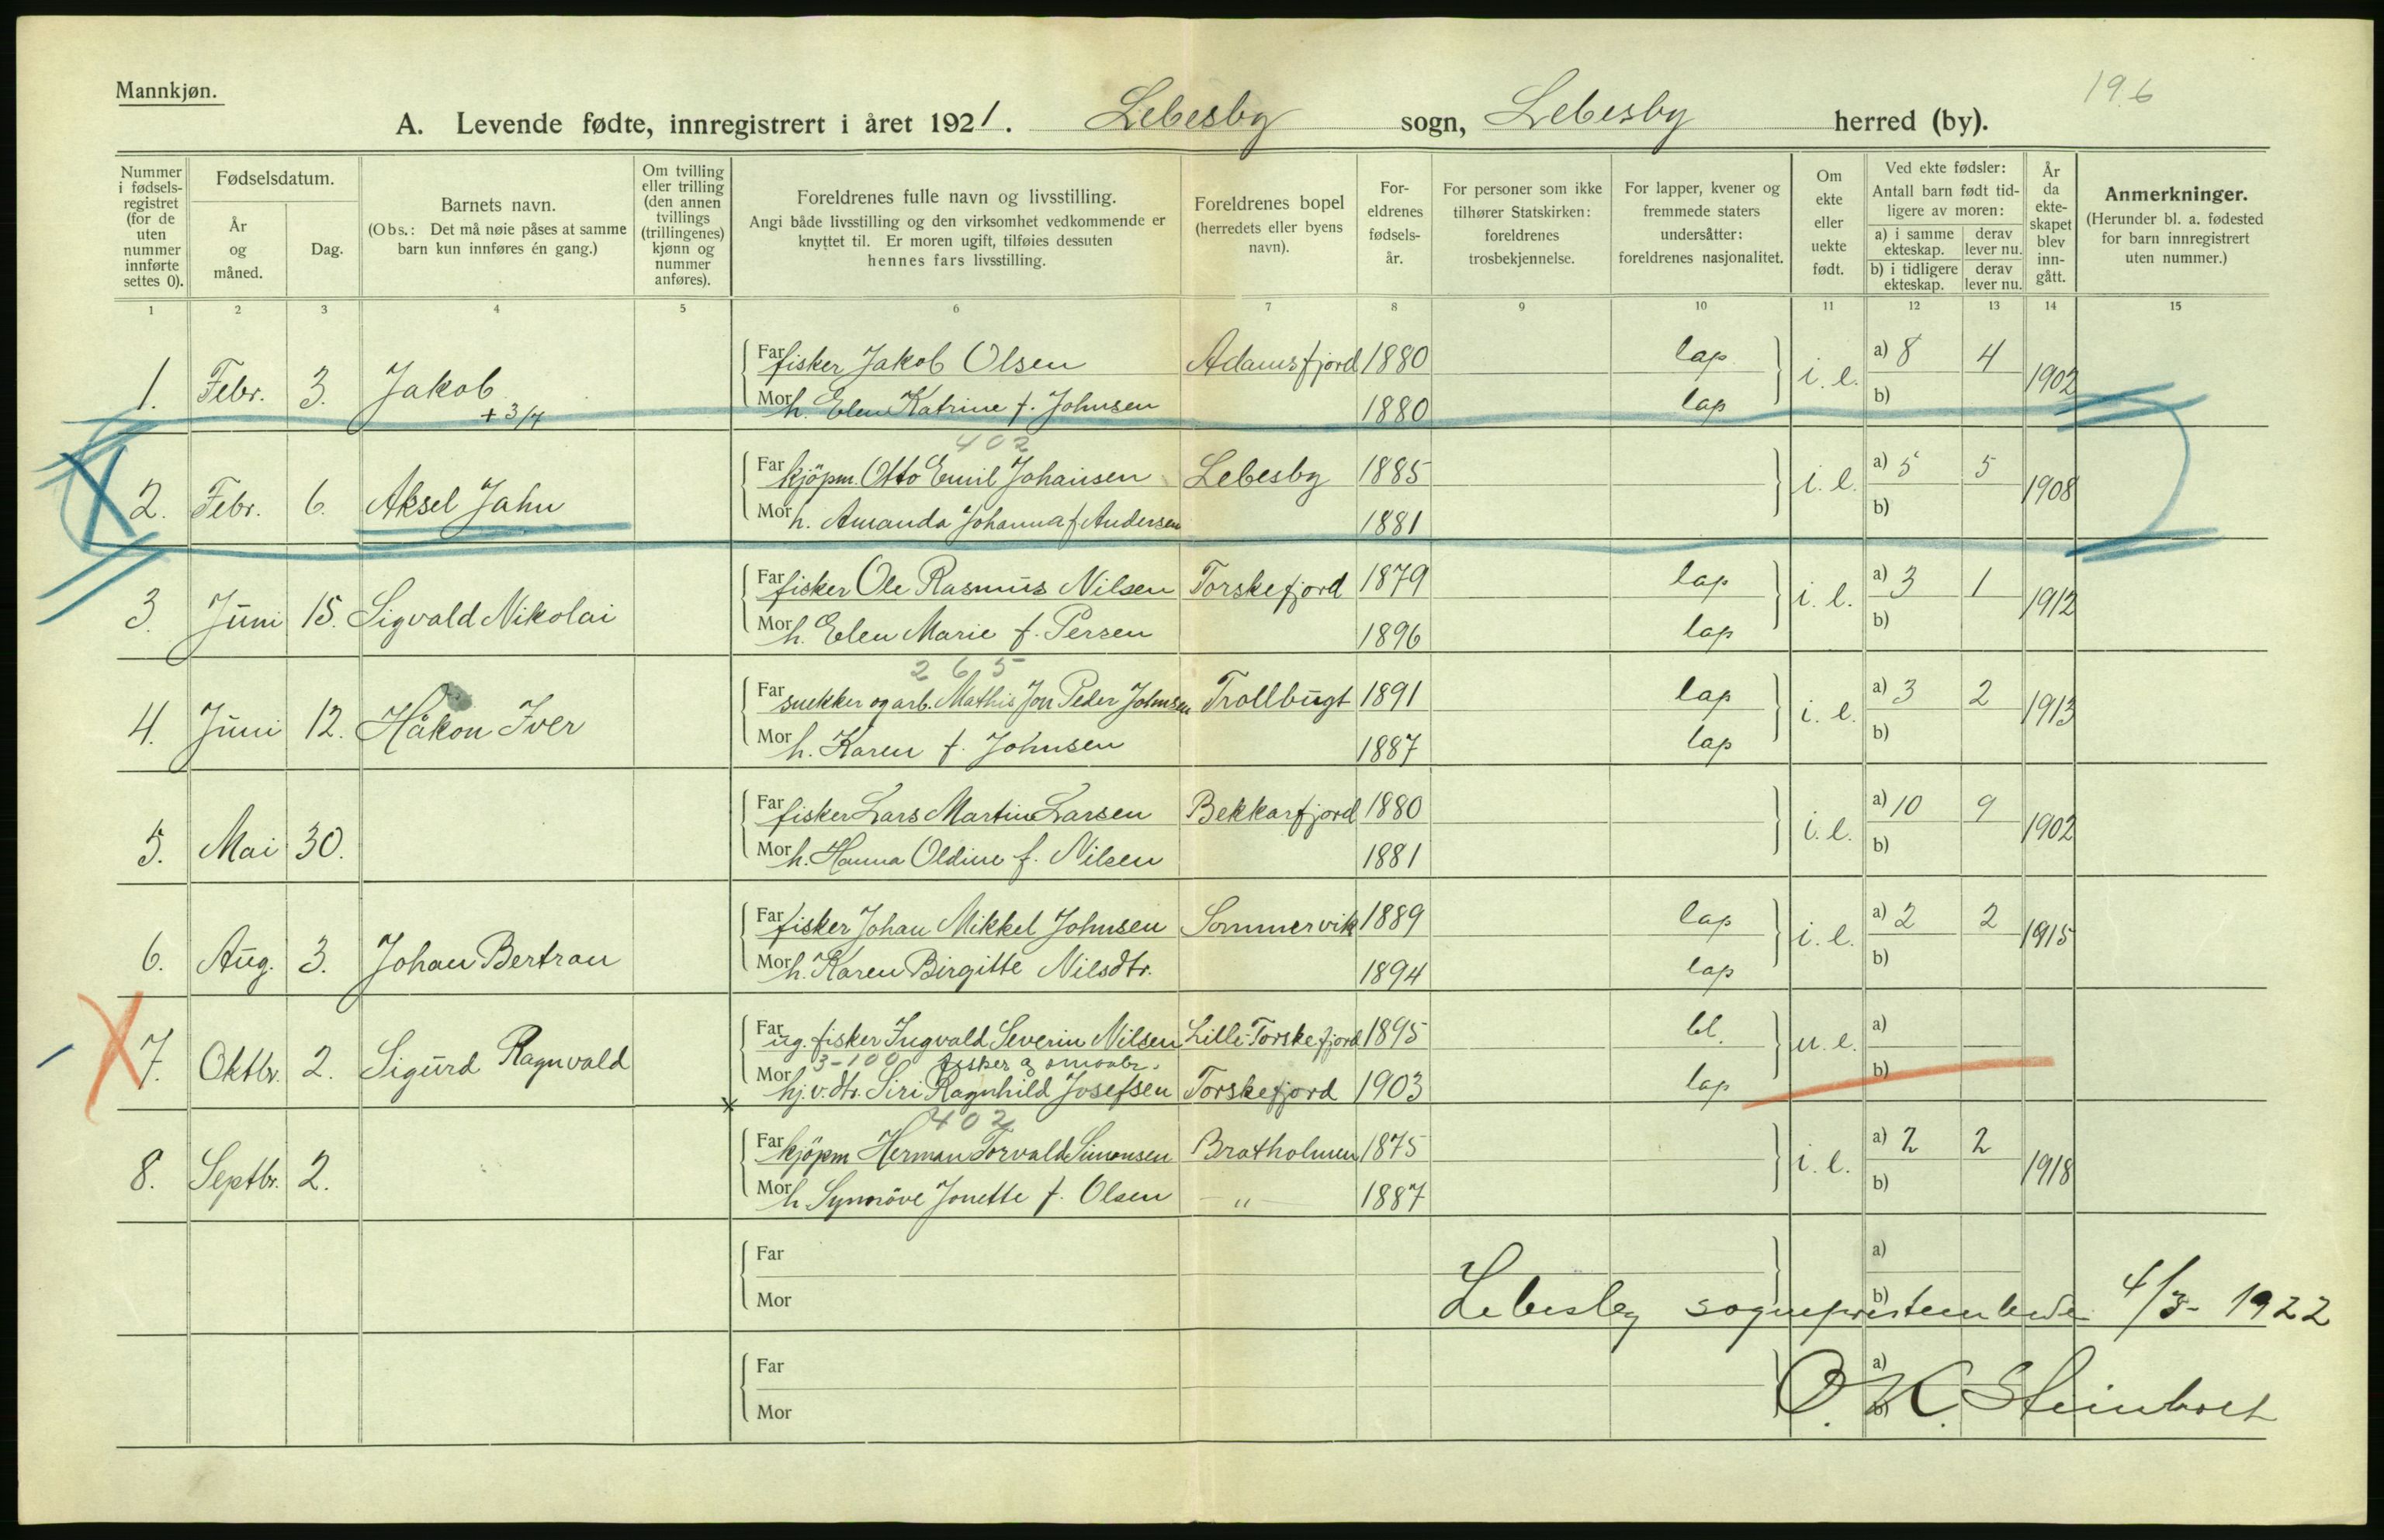 Mannkjøn.
196
A. Levende fødte, innregistrert i året 1921. Lebesby sogn, Lebesby herred (by).
Nummer i fødsels-registret (for de uten nummer innførte settes 0).
Fødselsdatum.
År og måned.
Dag.
Barnets navn.
(Obs.: Det må nøie påses at samme barn kun innføres én gang.)
Om tvilling eller trilling (den annen tvillings (trillingenes) kjønn og nummer anføres).
Foreldrenes fulle navn og livsstilling.
Angi både livsstilling og den virksomhet vedkommende er knyttet til. Er moren ugift, tilføies dessuten hennes fars livsstilling.
Foreldrenes bopel (herredets eller byens navn).
For-eldrenes fødsels-år.
For personer som ikke tilhører Statskirken: foreldrenes trosbekjennelse.
For lapper, kvener og fremmede staters undersåtter: foreldrenes nasjonalitet.
Om ekte eller uekte født.
Ved ekte fødsler: Antall barn født tid-ligere av moren:
a) i samme ekteskap. derav lever nu.
b) i tidligere ekteskap. derav lever nu.
År da ekte-skapet blev inn-gått.
Anmerkninger.
(Herunder bl. a. fødested for barn innregistrert uten nummer.)
1 2 3 4 5 6 7 8 9 10 11 12 13 14 15
Far fisker Jakob Olsen Adamsfjord 1880 lap a) 8 4
1. Febr. 3. Jakob i. e. 1902
+ 3/7 Mor h. Elen Katrine f. Johnsen 1880 lap b)
402
Far kjöpm. Otto Emil Johansen Lebesby 1885 a) 5 5
2. Febr. 6. Aksel Jahn i. e. 1908
Mor h. Amanda Johanna f. Andersen 1881 b)
Far fisker Ole Rasmus Nilsen Torskefjord 1879 lap a) 3 1
3. Juni 15. Sigvald Nikolai i. e. 1912
Mor h. Elen Marie f. Persen 1896 lap b)
265
Far snekker og arb. Mathis Jon Peder Johnsen Trollbugt 1891 lap a) 3 2
4. Juni 12. Håkon Iver i. e. 1913
Mor h. Karen f. Johnsen 1887 lap b)
Far fisker Lars Martin Larsen Bekkarfjord 1880 a) 10 9
5. Mai 30. i. e. 1902
Mor h. Hanna Oldine f. Nilsen 1881 b)
Far fisker Johan Mikkel Johnsen Sommervik 1889 lap a) 2 2
6. Aug. 3. Johan Bertran i. e. 1915
Mor h. Karen Birgitte Nilsdtr. 1894 lap b)
Far ug. fisker Ingvald Severin Nilsen Lille-Torskefjord 1895 bl. a)
7. Oktbr. 2. Sigurd Ragnvald u. e.
3-100 fisker og småbr.
Mor hj. v. dtr. Siri Ragnhild Josefsen Torskefjord 1903 lap b)
402
Far kjöpm Herman Torvald Simonsen Bratholmen 1875 a) 2 2
8. Septbr. 2. i. e. 1918
Mor h. Synnöve Jonette f. Olsen — " — 1887 b)
Far a)
Mor b)
Lebesby sogneprestembede 4/3- 1922
Far a)
Mor b)
O. K. Steinholt